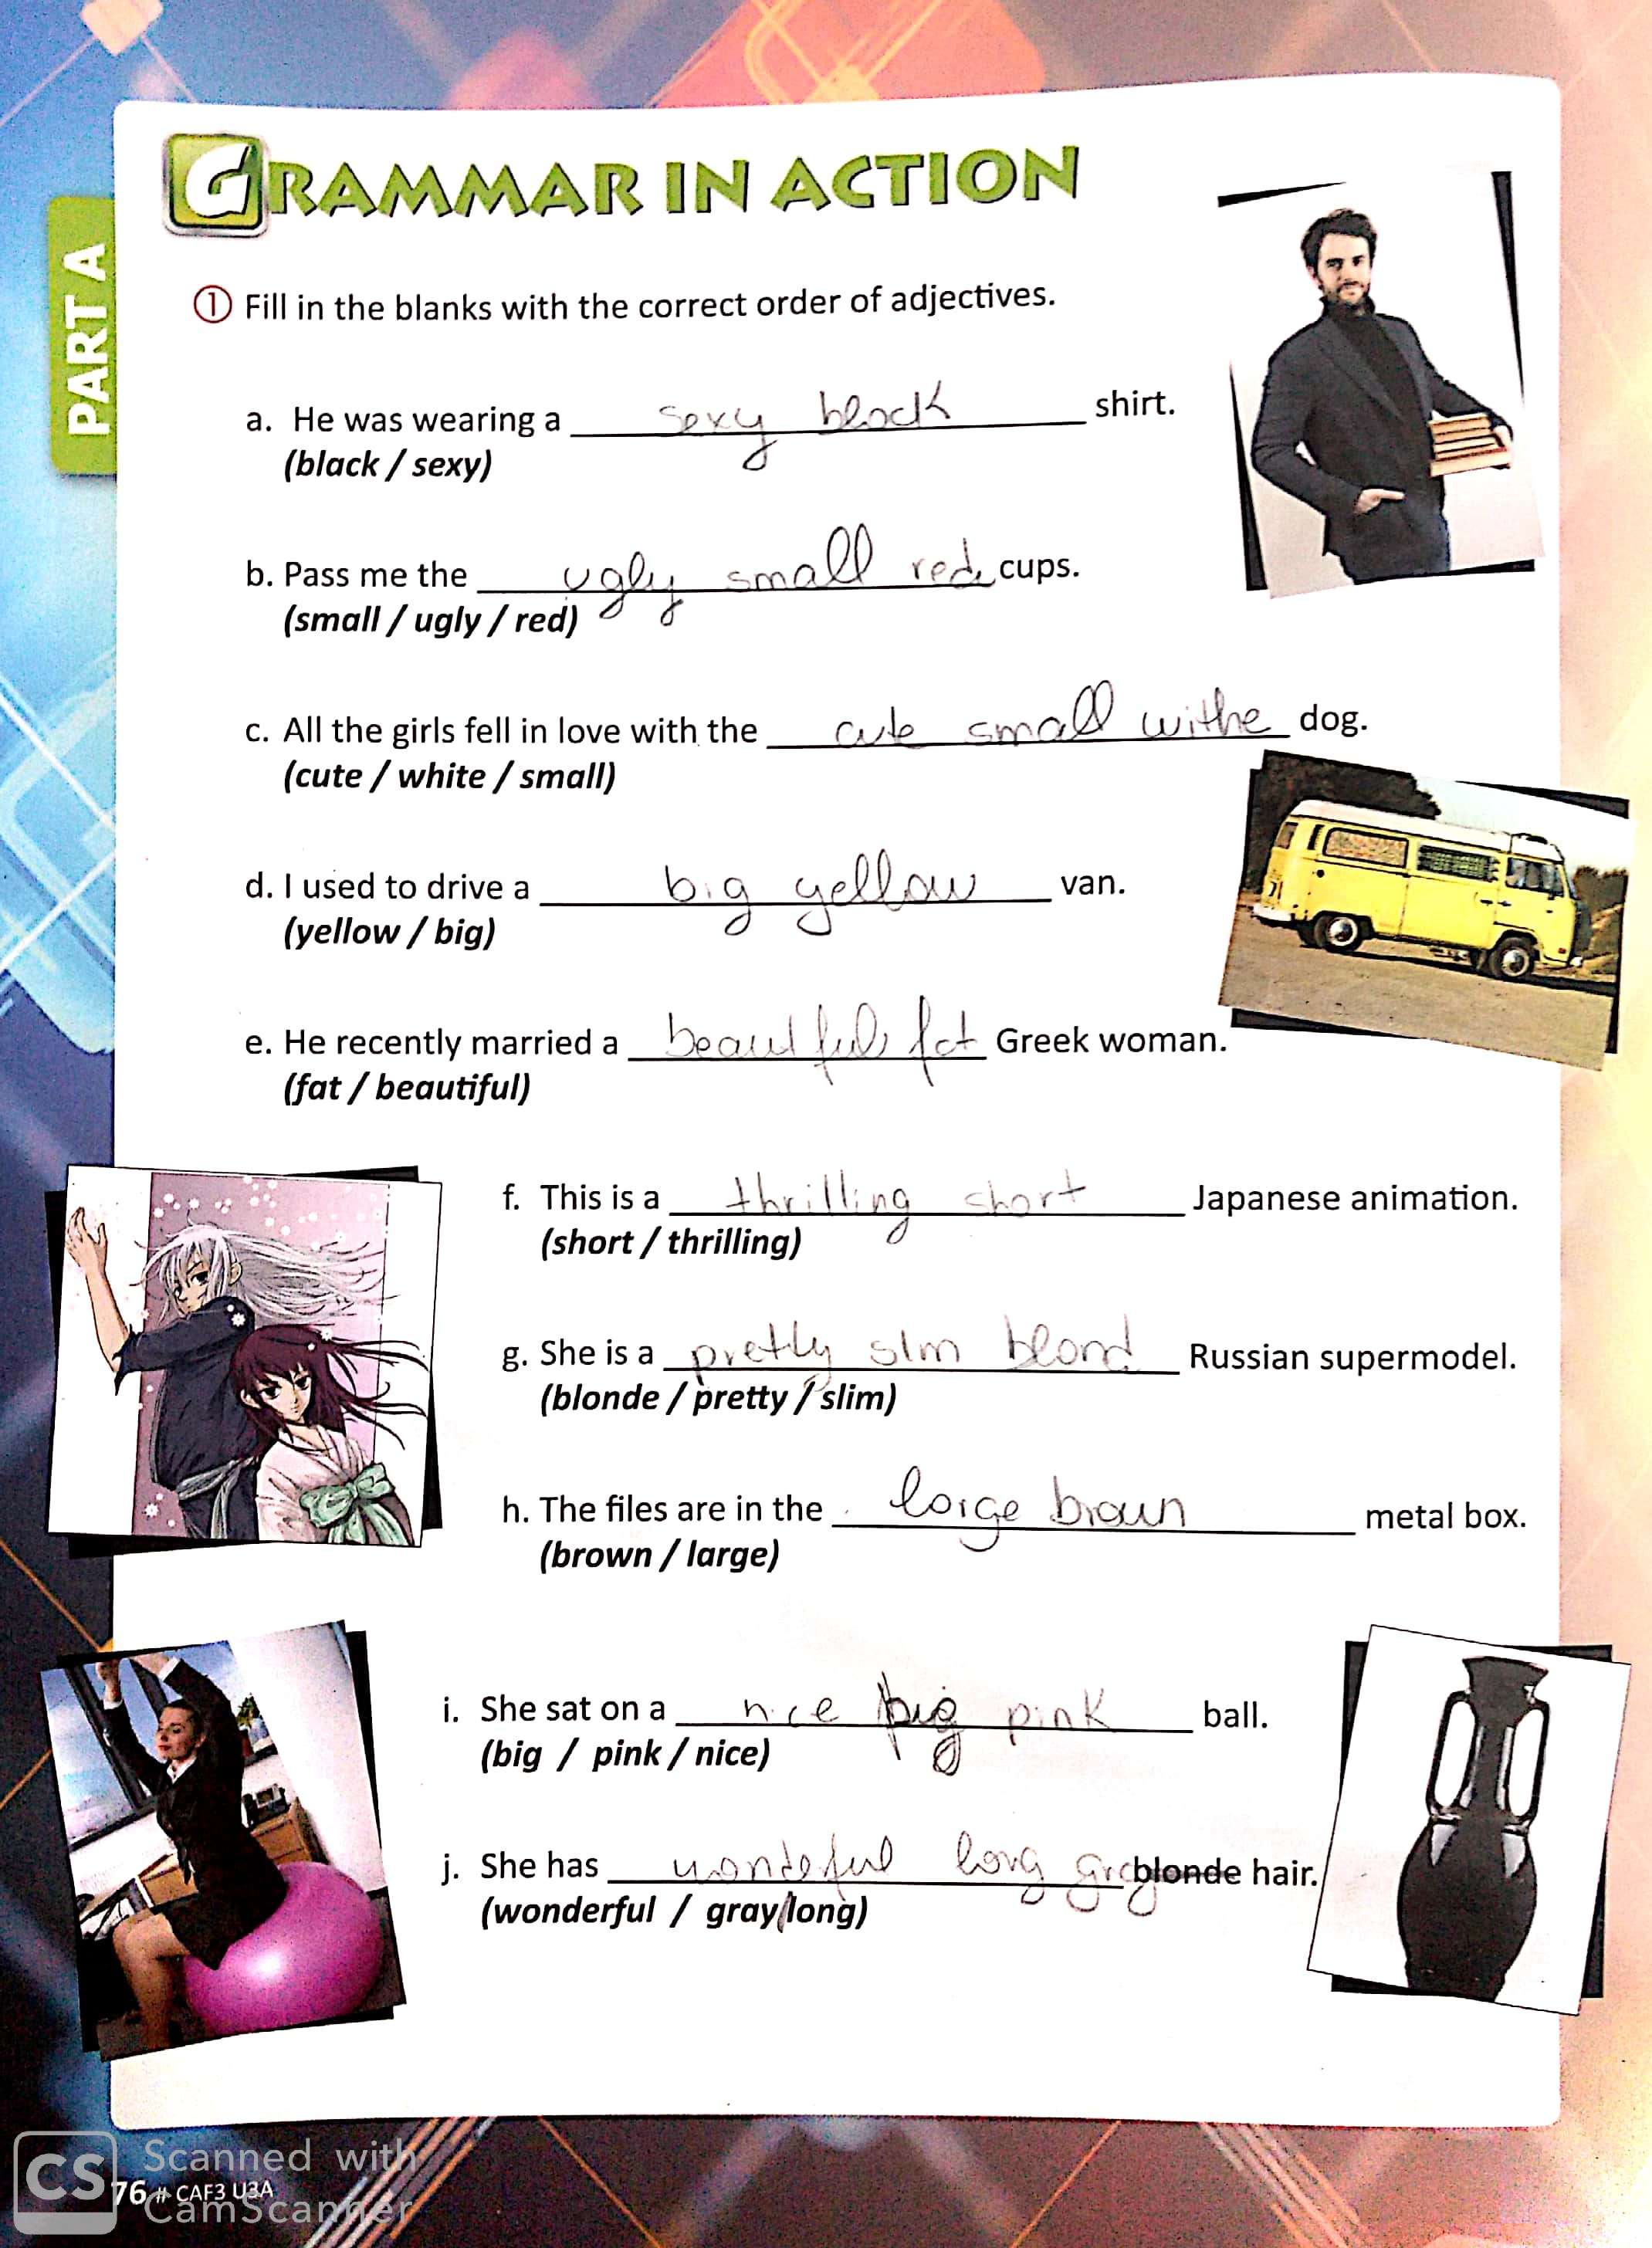 GRAMMAR IN ACTION
PART A
① Fill in the blanks with the correct order of adjectives.
a. He was wearing a sexy black shirt.
(black / sexy)
b. Pass me the ugly small red cups.
(small / ugly / red)
c. All the girls fell in love with the cute small withe dog.
(cute / white / small)
d. I used to drive a big yellow van.
(yellow / big)
e. He recently married a beautful fat Greek woman.
(fat / beautiful)
f. This is a thrilling short Japanese animation.
(short / thrilling)
g. She is a pretty slm blond Russian supermodel.
(blonde / pretty / slim)
h. The files are in the large braun metal box.
(brown / large)
i. She sat on a nice big pink ball.
(big / pink / nice)
j. She has wonderful long gray blonde hair.
(wonderful / gray/long)
CS Scanned with
CamScanner
76 # CAF3 U3A